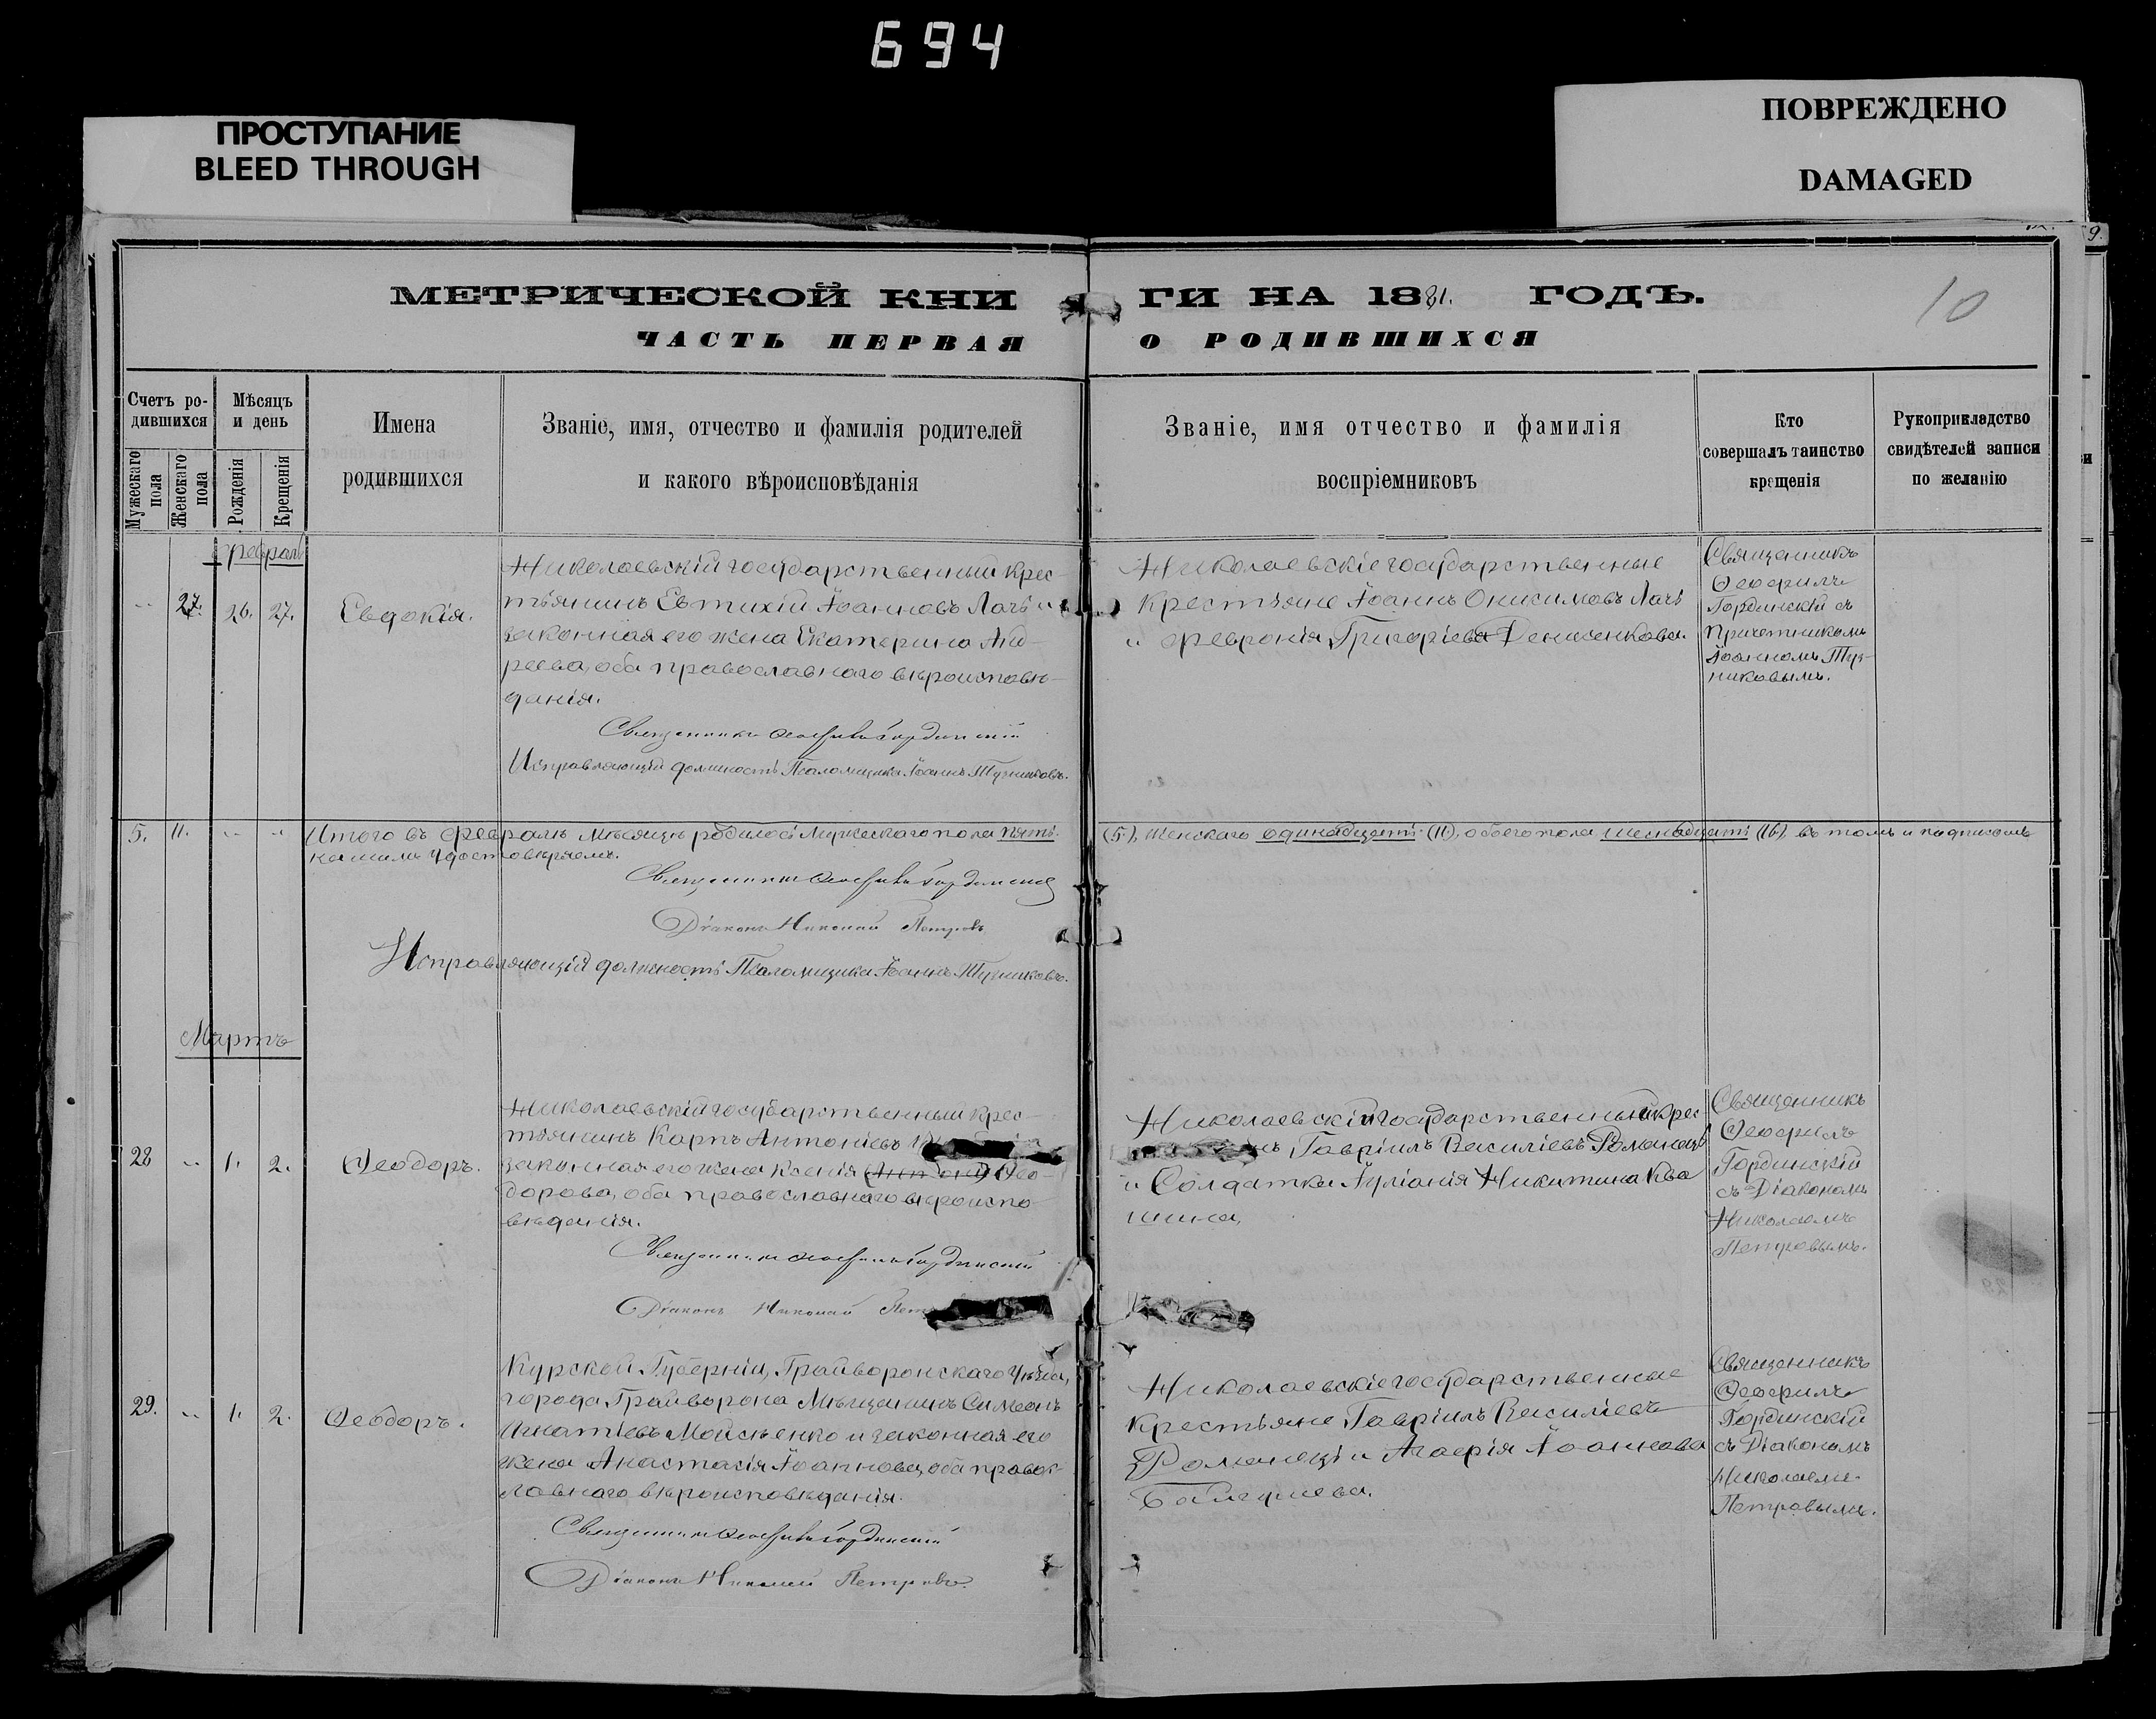 694
ПРОСТУПАНИЕ
BLEED THROUGH
ПОВРЕЖДЕНО
DAMAGED
9.
10
МЕТРИЧЕСКОЙ КНИГИ НА 1881. ГОДЪ.
ЧАСТЬ ПЕРВАЯ О РОДИВШИХСЯ
Счетъ ро-
дившихся
Мужескаго пола
Женскаго пола
Мѣсяцъ
и день
Рожденія
Крещенія
Имена
родившихся
Званіе, имя, отчество и фамилія родителей
и какого вѣроисповѣданія
Званіе, имя отчество и фамилія
воспріемниковъ
Кто
совершалъ таинство
крещенія
Рукоприкладство
свидѣтелей записи
по желанію
Февраль
27. 26. 27.
Евдокія.
Николаевскій государственный крес-
тьянинъ Евтихій Іоанновъ Лачь и
законная его жена Екатерина Анд-
реева, оба православнаго вѣроисповѣ-
данія.
Священникъ Ѳеофилъ Гординскій
Исправляющій должность Псаломщика Іоаннъ
Николаевскіе государственные
крестьяне Іоаннъ Онисимовъ Лачь
и Февронія Григоріева Денисенкова.
Священникъ
Ѳеофилъ
Гординскій съ
Причетникомъ
Іоанномъ
никовымъ.
5. 11.
Итого въ Февралѣ мѣсяцѣ родилось Мужескаго пола пять (5), Женскаго одинадцать (11), обоего пола шеснадцать (16), въ томъ и подписомъ
нашимъ удостовѣряемъ.
Священникъ Ѳеофилъ Гординскій
Діаконъ Николай Петровъ
Исправляющій должность Псаломщика Іоаннъ
Мартъ
28 1. 2.
Ѳеодоръ.
Николаевскій государственный крес-
тьянинъ Карпъ Антоніевъ
законная его жена Ксенія Ѳео-
дорова, оба православнаго вѣроиспо-
вѣданія.
Священникъ Ѳеофилъ Гординскій
Діаконъ Николай
Николаевскій государственный крес-
Гавріилъ Василіевъ Романецъ
и Солдатка Іуліанія Никитина Ква
шина.
Священникъ
Ѳеофилъ
Гординскій
съ Діакономъ
Николаемъ
Петровымъ.
29. 1. 2.
Ѳеодоръ.
Курской Губерніи, Грайворонскаго Уѣзда,
города Грайворона Мѣщанинъ Симеонъ
Игнатіевъ Мойсѣенко и законная его
жена Анастасія Іоаннова, оба правос-
лавнаго вѣроисповѣданія.
Священникъ Ѳеофилъ Гординскій
Діаконъ Николай Петровъ
Николаевскіе государственные
крестьяне Гавріилъ Василіевъ
Романецъ и Агафія Іоаннова
Священникъ
Ѳеофилъ
Гординскій
съ Діакономъ
Николаемъ
Петровымъ.